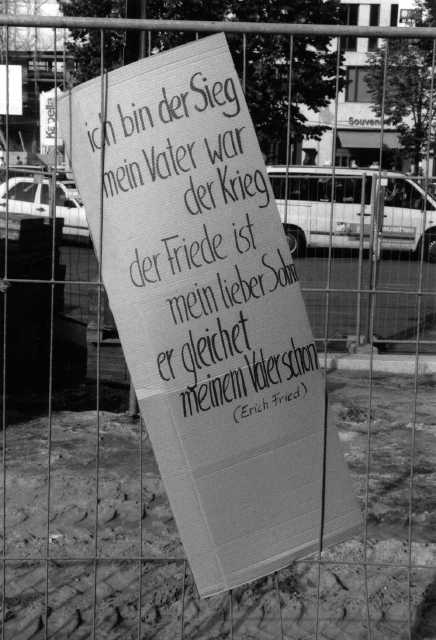 ich bin der Sieg
mein Vater war
der Krieg
der Friede ist
mein lieber Sohn
er gleichet
meinem Vater schon
(Erich Fried)
Souvenirs